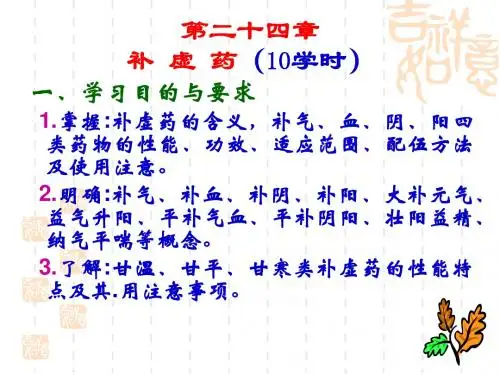 第二十四章
补 虚 药（10学时）
一、学习目的与要求
1.掌握:补虚药的含义，补气、血、阴、阳四
类药物的性能、功效、适应范围、配伍方法
及使用注意。
2.明确:补气、补血、补阴、补阳、大补元气、
益气升阳、平补气血、平补阴阳、壮阳益精、
纳气平喘等概念。
3.了解:甘温、甘平、甘寒类补虚药的性能特
点及其.用注意事项。
吉祥
如意